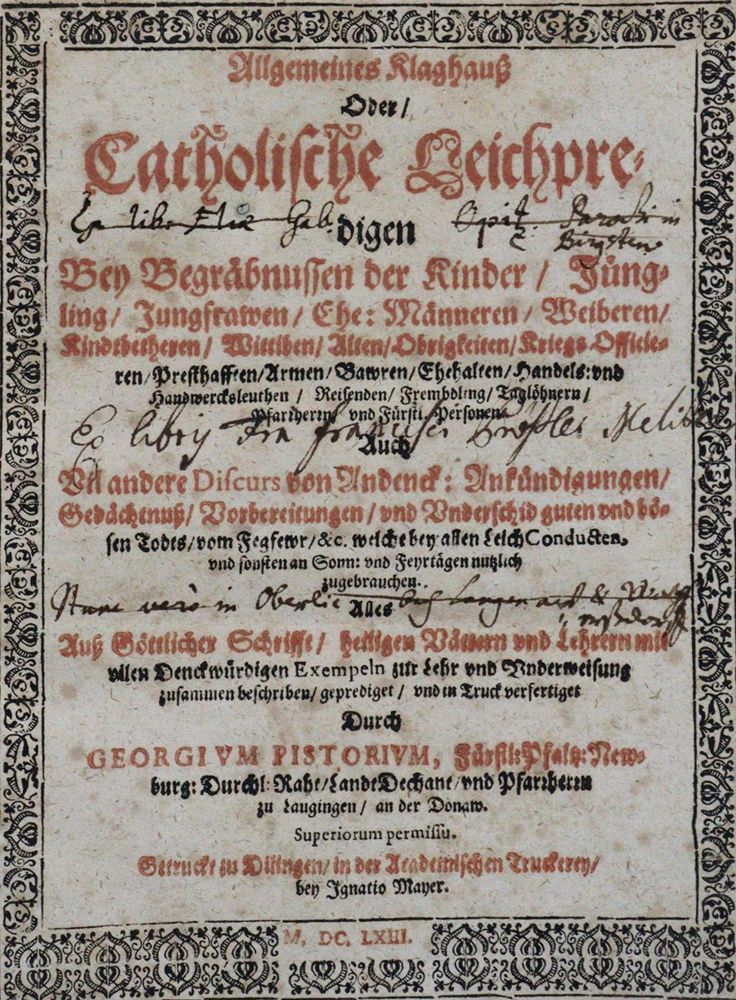 Allgemeines Klaghauß
Oder/
Catholische Leichpre-
Ex lib. Elie Gab. Opitz Parochi in
digen
Bey Begräbnussen der Kinder / Jüng-
ling/ Jungfrawen/ Ehe: Männeren/ Weiberen/
Kindtbetheren/ Wittiben/ Alten/ Obrigkeiten/ Kriegs-Officie-
ren/ Presthafften/ Armen/ Bawren/ Ehehalten/ Handels: vnd
Handwercksleuthen / Reisenden/ Frembdling/ Taglöhnern/
Pfarrherrn/ vnd Fürstl. Personen.
Ex libris Francisci
Auch
Vil andere Discurs von Andenck: Ankündigungen/
Gedächtnuß/ Vorbereitungen/ vnd Vnderschid guten vnd bö-
sen Todts/ vom Fegfewr/ &c. welche bey allen Leich Conducten,
vnd sonsten an Sonn: vnd Feyrtägen nutzlich
zugebrauchen.
in Oberlie
Alles
Auß Göttlicher Schrifft/ heiligen Vättern vnd Lehrern mit
vilen Denckwürdigen Exempeln zur Lehr vnd Vnderweisung
zusammen beschriben/ geprediget / vnd in Truck verfertiget
Durch
GEORGIVM PISTORIVM, Fürstl: Pfaltz: New-
burg: Durchl: Raht/ Landt Dechant/ vnd Pfarrherrn
zu Laugingen/ an der Donaw.
Superiorum permissu.
Getruckt zu Dilingen/ in der Academischen Truckerey/
bey Ignatio Mayer.
M. DC. LXIII.